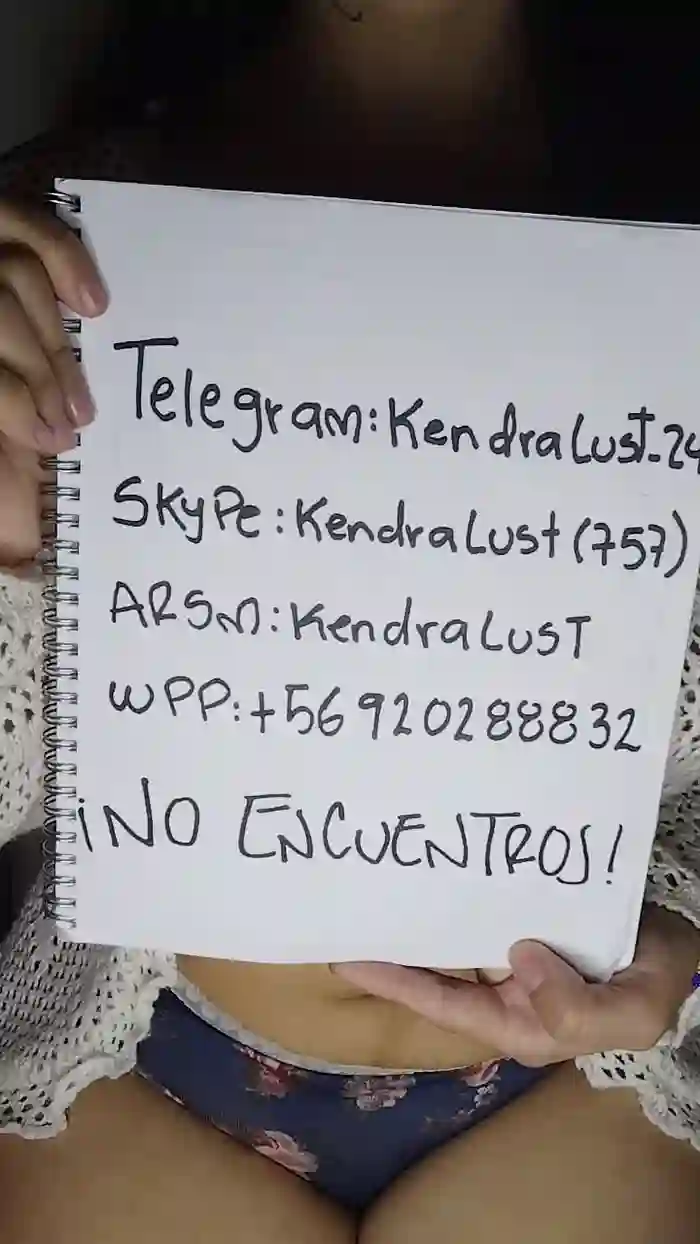 Telegram: Kendra Lust_24
SKyPe: Kendra Lust (757)
ARSM: Kendra LusT
WPP: +56920288832
¡NO ENCUENTROS!